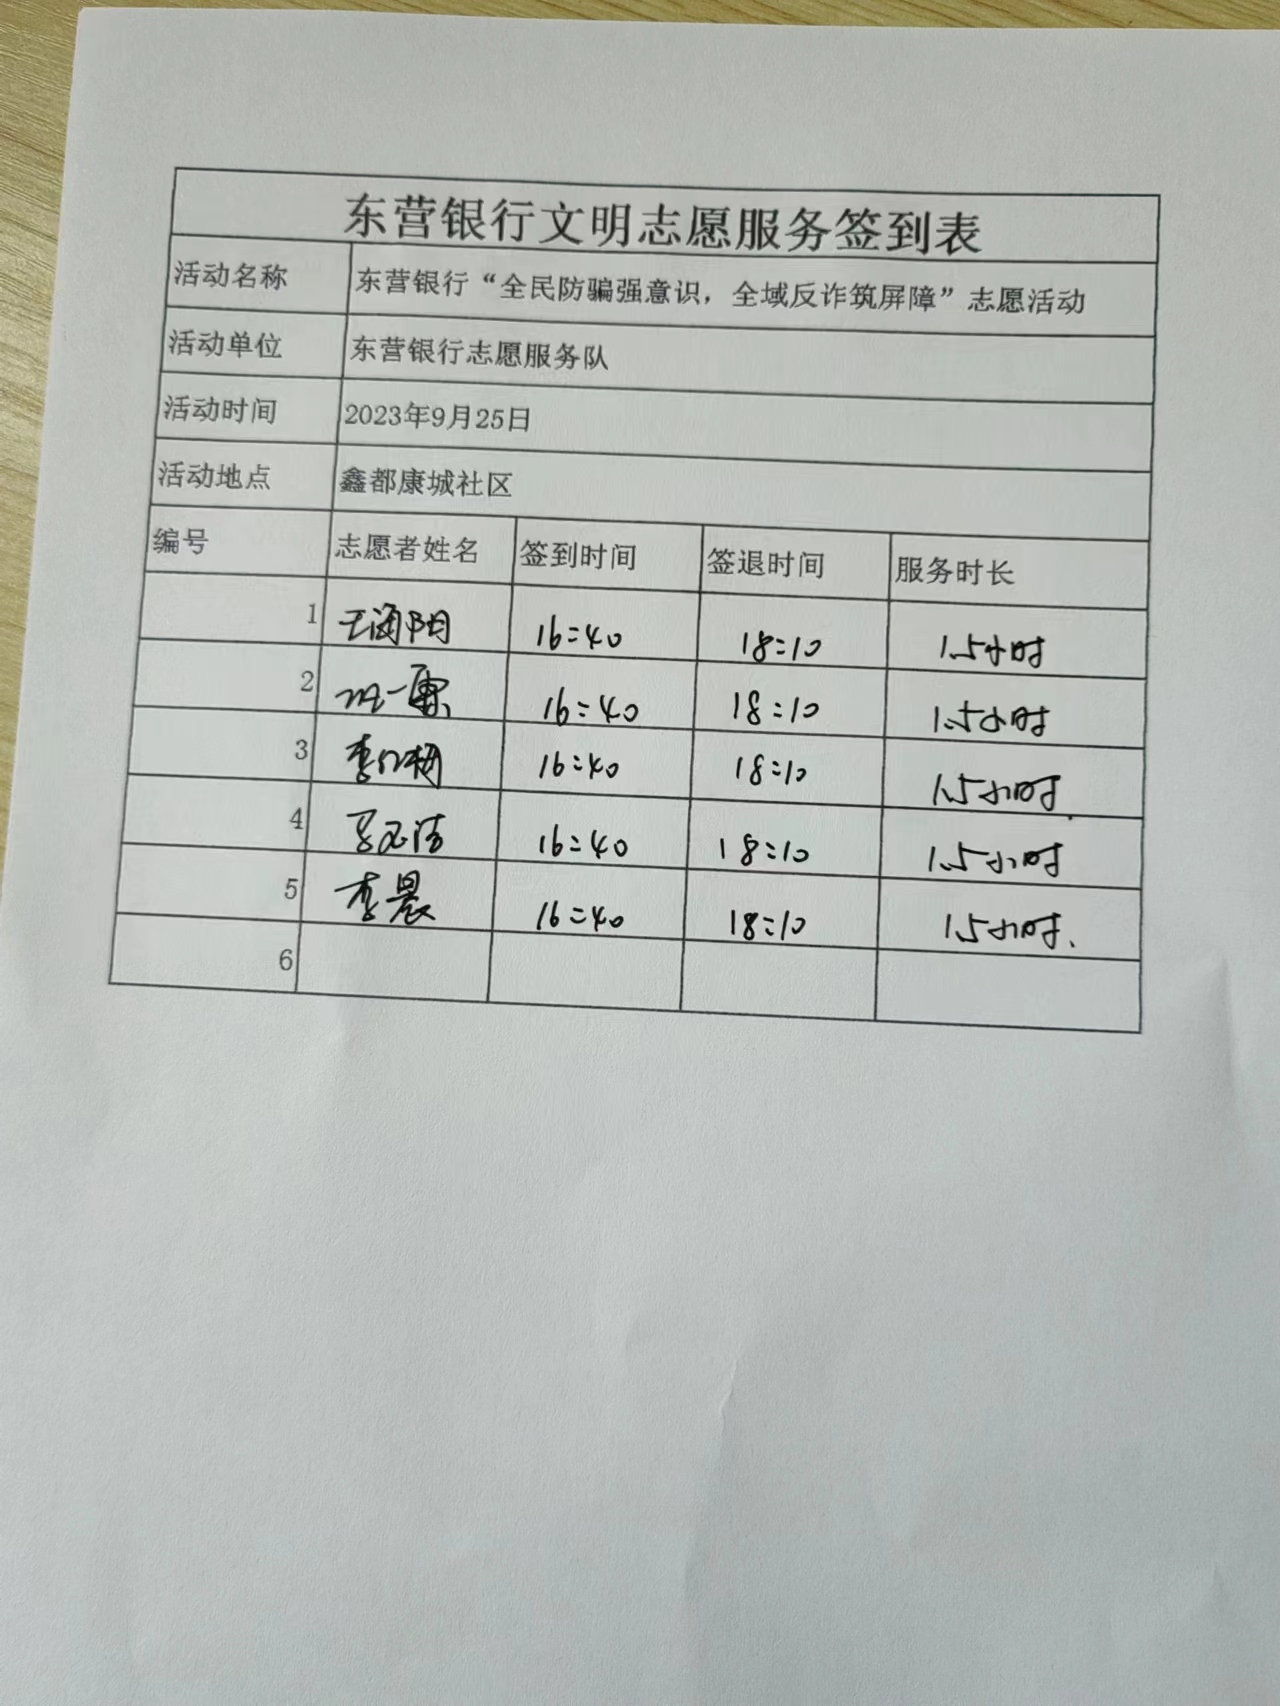 东营银行文明志愿服务签到表
活动名称 东营银行“全民防骗强意识，全域反诈筑屏障”志愿活动
活动单位 东营银行志愿服务队
活动时间 2023年9月25日
活动地点 鑫都康城社区
编号 志愿者姓名 签到时间 签退时间 服务时长
1 16:40 18:10 1.5小时
2 16:40 18:10 1.5小时
3 16:40 18:10 1.5小时
4 16:40 18:10 1.5小时
5 李晨 16:40 18:10 1.5小时
6